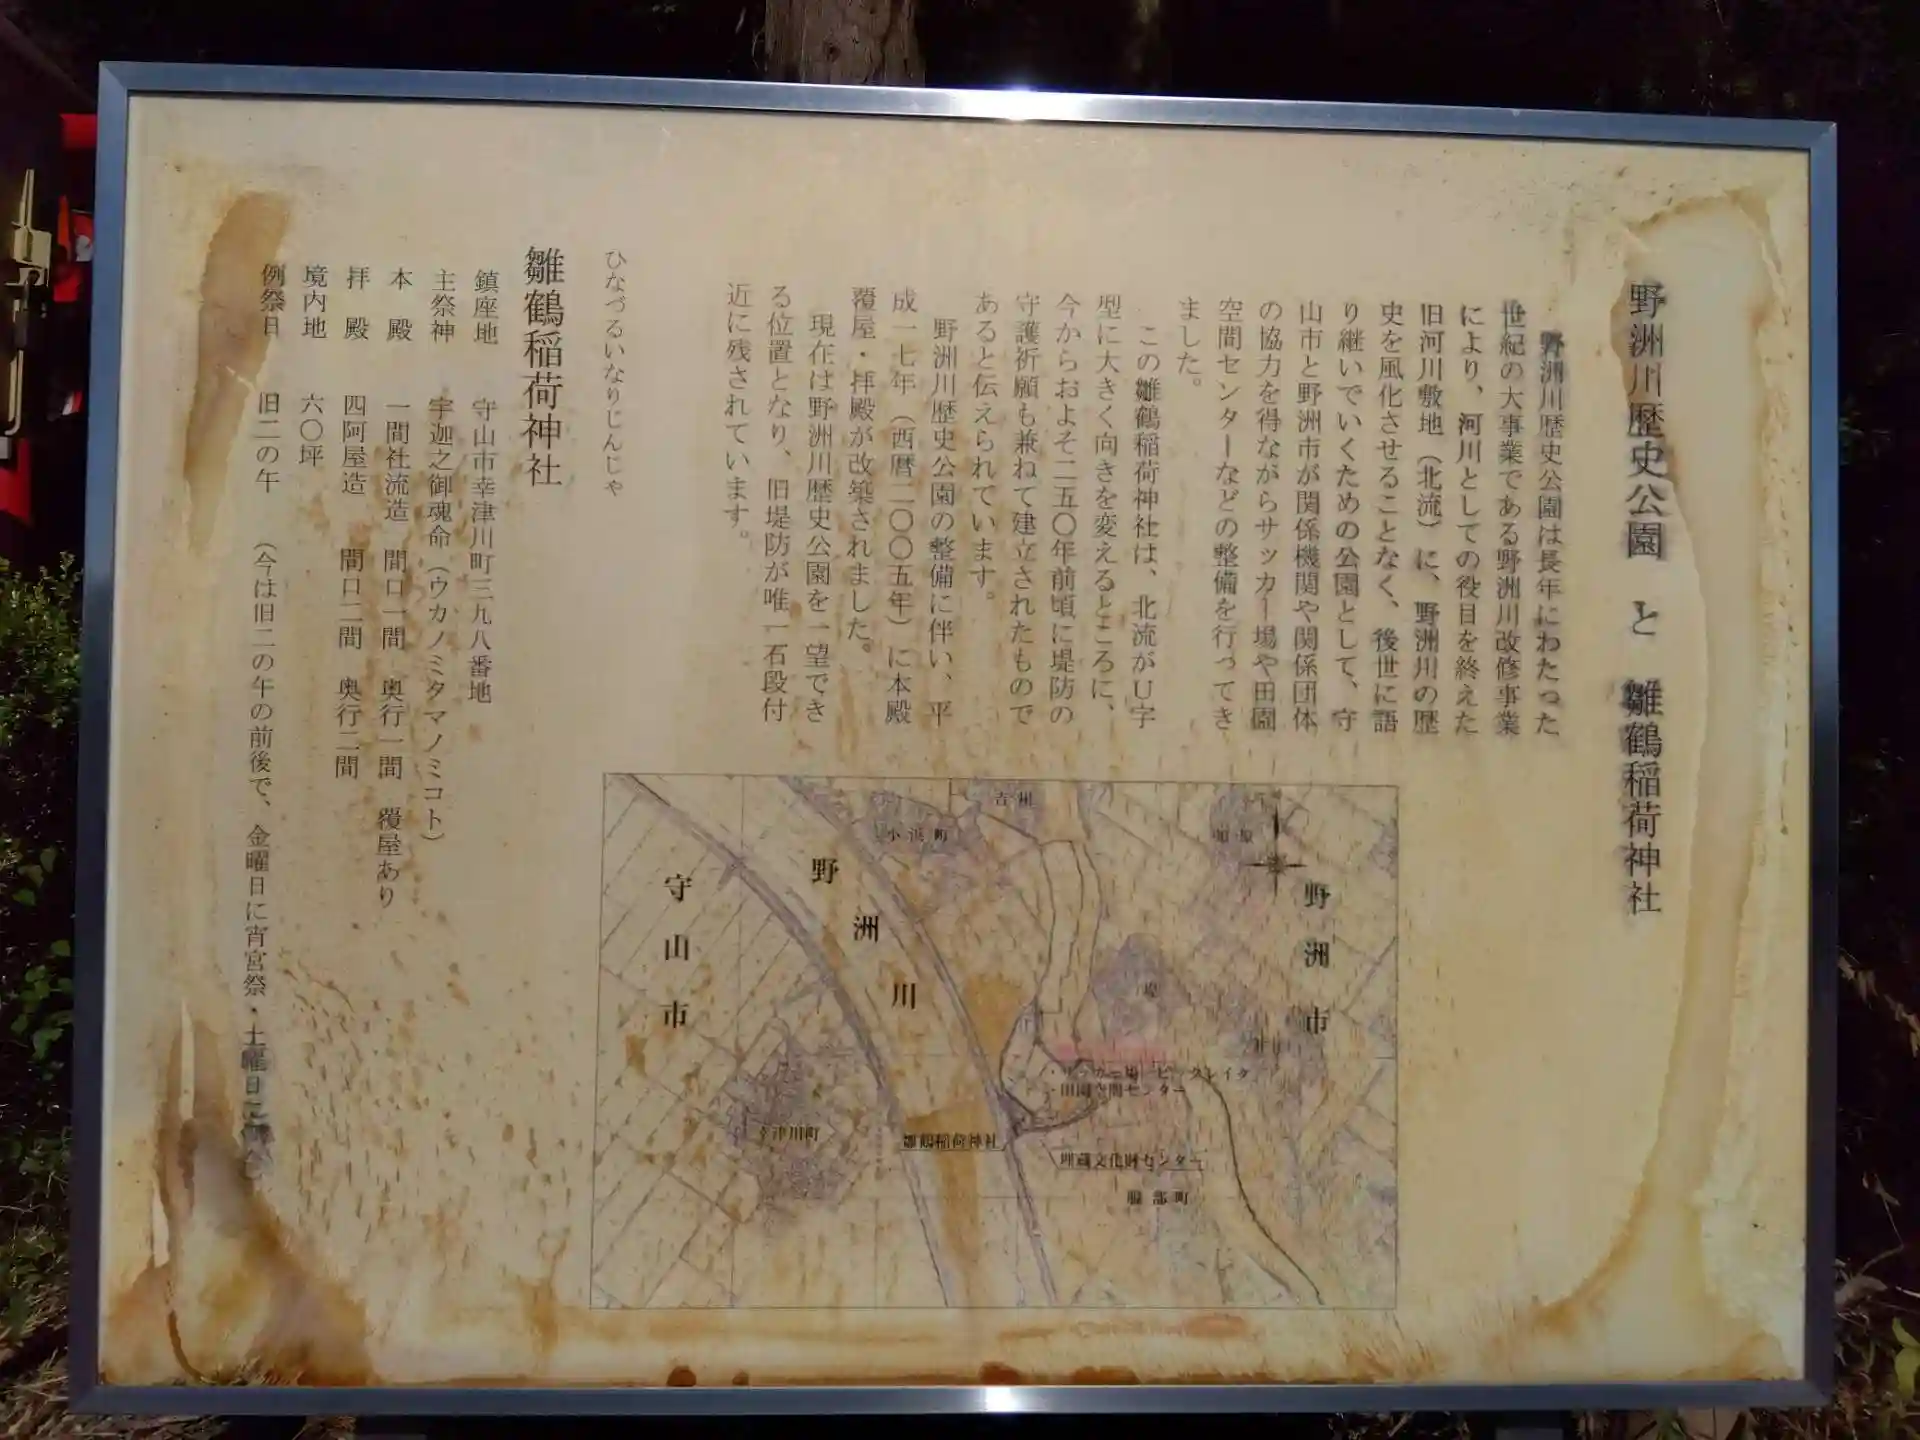 野洲川歴史公園 と 雛鶴稲荷神社
野洲川歴史公園は長年にわたった
世紀の大事業である野洲川改修事業
により、河川としての役目を終えた
旧河川敷地（北流）に、野洲川の歴
史を風化させることなく、後世に語
り継いでいくための公園として、守
山市と野洲市が関係機関や関係団体
の協力を得ながらサッカー場や田園
空間センターなどの整備を行ってき
ました。
この雛鶴稲荷神社は、北流がU字
型に大きく向きを変えるところに、
今からおよそ二五〇年前頃に堤防の
守護祈願も兼ねて建立されたもので
あると伝えられています。
野洲川歴史公園の整備に伴い、平
成一七年（西暦二〇〇五年）に本殿
覆屋・拝殿が改築されました。
現在は野洲川歴史公園を一望でき
る位置となり、旧堤防が唯一石段付
近に残されています。
ひなづるいなりじんじゃ
雛鶴稲荷神社
鎮座地 守山市幸津川町三九八番地
主祭神 宇迦之御魂命（ウカノミタマノミコト）
本殿 一間社流造 間口一間 奥行一間 覆屋あり
拝殿 四阿屋造 間口二間 奥行二間
境内地 六〇坪
例祭日 旧二の午 （今は旧二の午の前後で、金曜日に宵宮祭・土曜日
野洲市
野洲川
守山市
小浜町
吉川
堤
・サッカー場 ビッグレイク
・田園空間センター
幸津川町
雛鶴稲荷神社
埋蔵文化財センター
服部町